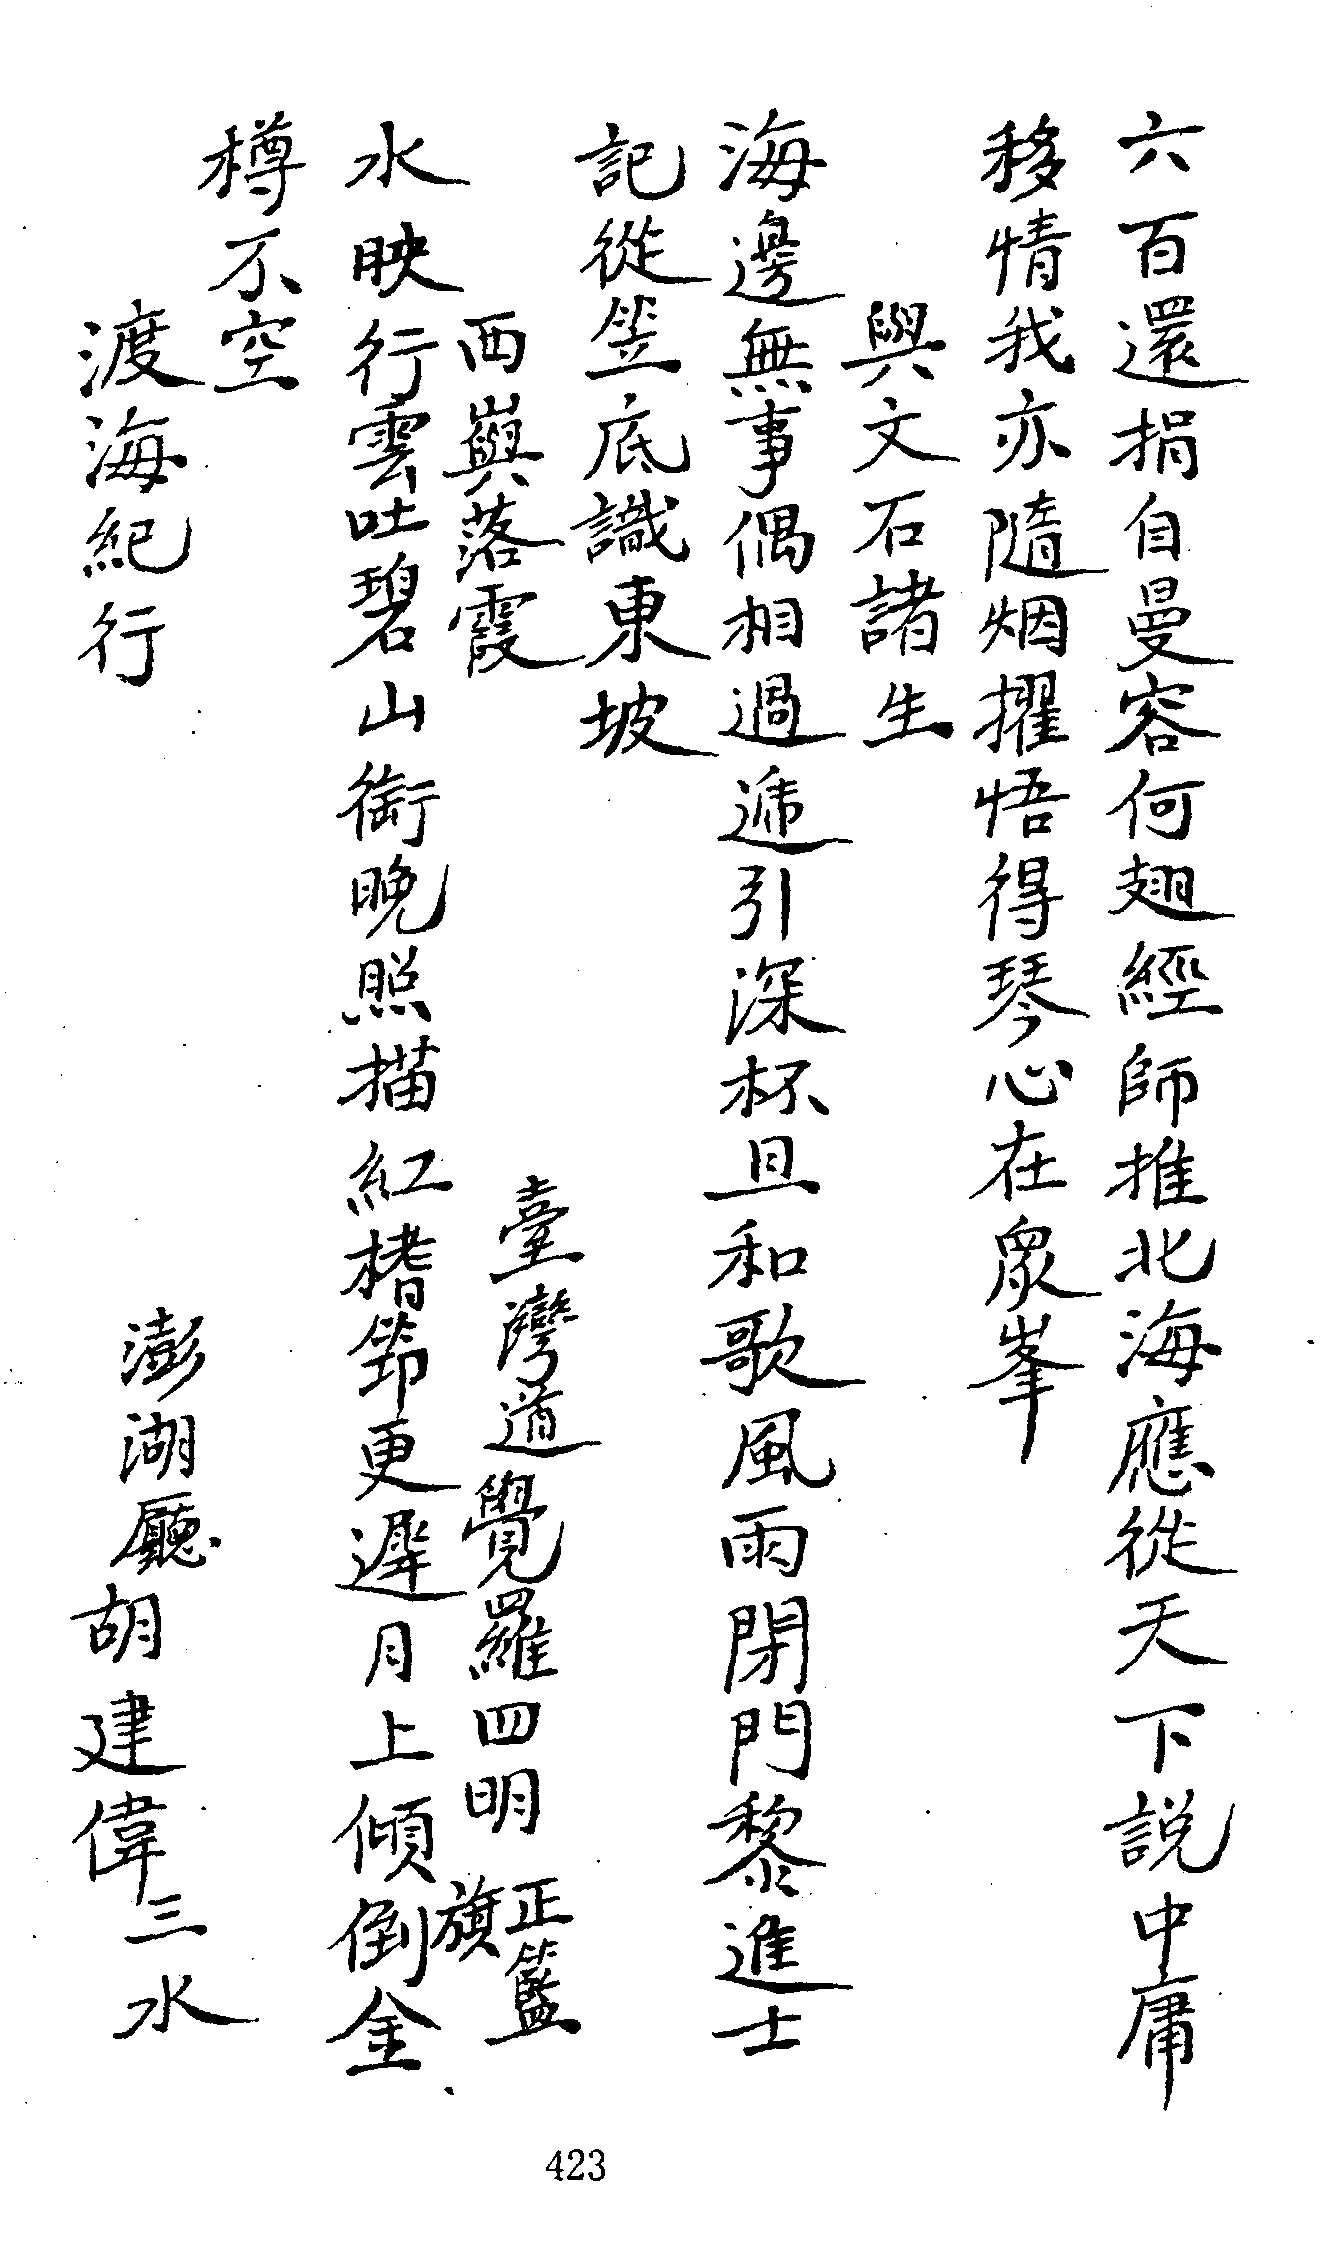 六百還捐自曼容何翅經師推北海應從天下說中庸
移情我亦隨烟擢悟得琴心在眾峯
與文石諸生
海邊無事偶相過遞引深杯且和歌風雨閉門黎進士
記從笠底識東坡
西嶼落霞
臺灣道覺羅四明正籃旗
水映行雲吐碧山銜晚照描紅楮筇更遲月上傾倒金
樽不空
渡海紀行
澎湖廳胡建偉三水
423